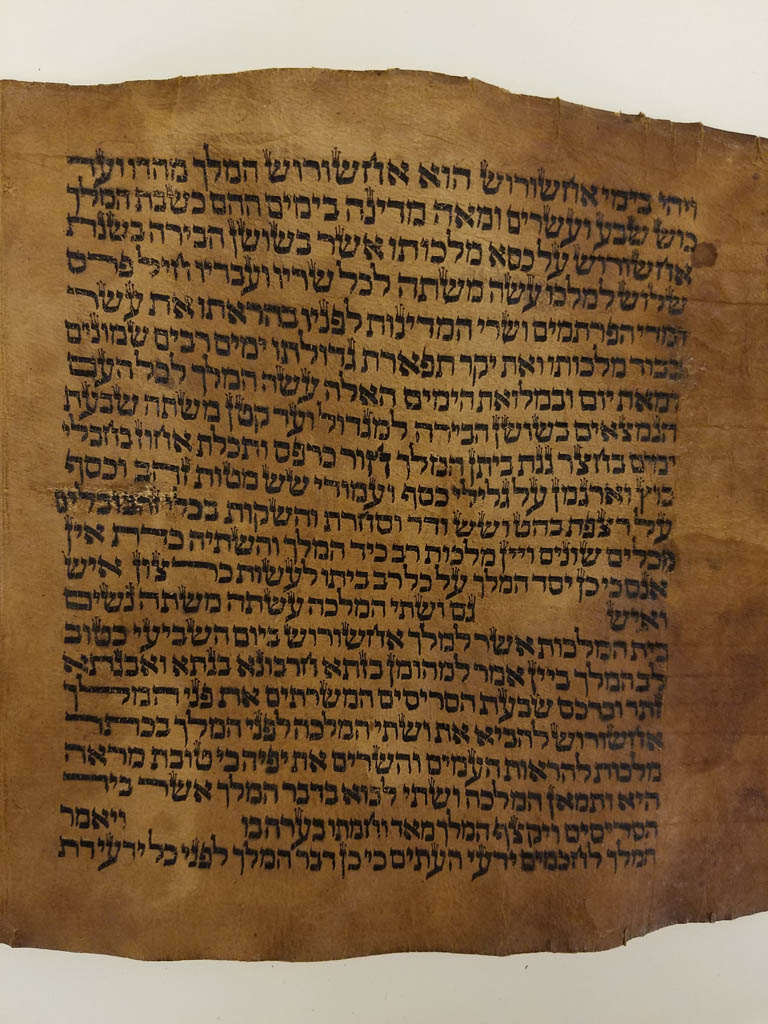 ויהי בימי אחשורוש הוא אחשורוש המלך מהדו ועד
כוש שבע ועשרים ומאה מדינה בימים ההם כשבת המלך
אחשורוש על כסא מלכותו אשר בשושן הבירה בשנת
שלוש למלכו עשה משתה לכל שריו ועבדיו חיל פרס
ומדי הפרתמים ושרי המדינות לפניו בהראתו את עשר
כבוד מלכותו ואת יקר תפארת גדולתו ימים רבים שמונים
ומאת יום ובמלואת הימים האלה עשה המלך לכל העם
הנמצאים בשושן הבירה למגדול ועד קטן משתה שבעת
ימים בחצר גנת ביתן המלך חור כרפס ותכלת אחוז בחבלי
בוץ וארגמן על גלילי כסף ועמודי שש מטות זהב וכסף
על רצפת בהט ושש ודר וסחרת והשקות בכלי זהב וכלים
מכלים שונים ויין מלכות רב כיד המלך והשתיה כדת אין
אנס כי כן יסד המלך על כל רב ביתו לעשות כרצון איש
ואיש גם ושתי המלכה עשתה משתה נשים
בית המלכות אשר למלך אחשורוש ביום השביעי כטוב
לב המלך ביין אמר למהומן בזתא חרבונא בגתא ואבגתא
זתר וכרכס שבעת הסריסים המשרתים את פני המלך
אחשורוש להביא את ושתי המלכה לפני המלך בכתר
מלכות להראות העמים והשרים את יפיה כי טובת מראה
היא ותמאן המלכה ושתי לבוא בדבר המלך אשר ביד
הסריסים ויקצף המלך מאד וחמתו בערה בו ויאמר
המלך לחכמים ידעי העתים כי כן דבר המלך לפני כל ידעי דת